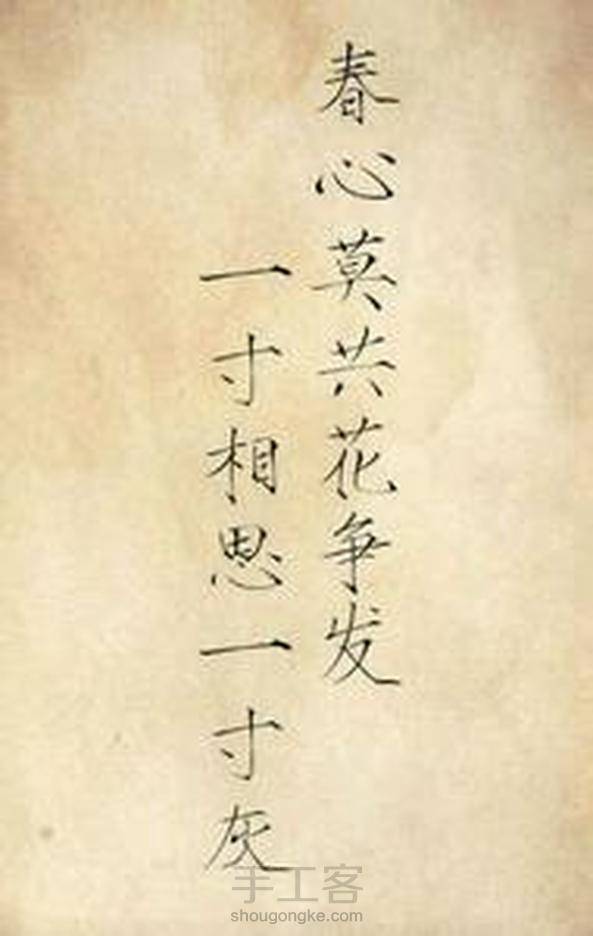 春心莫共花争发
一寸相思一寸灰
手工客
shougongke.com